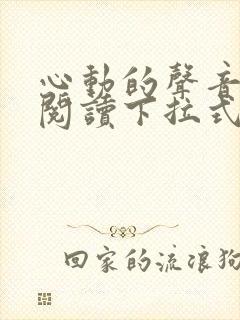 心動的聲音
閱讀下拉式
回家的流浪狗